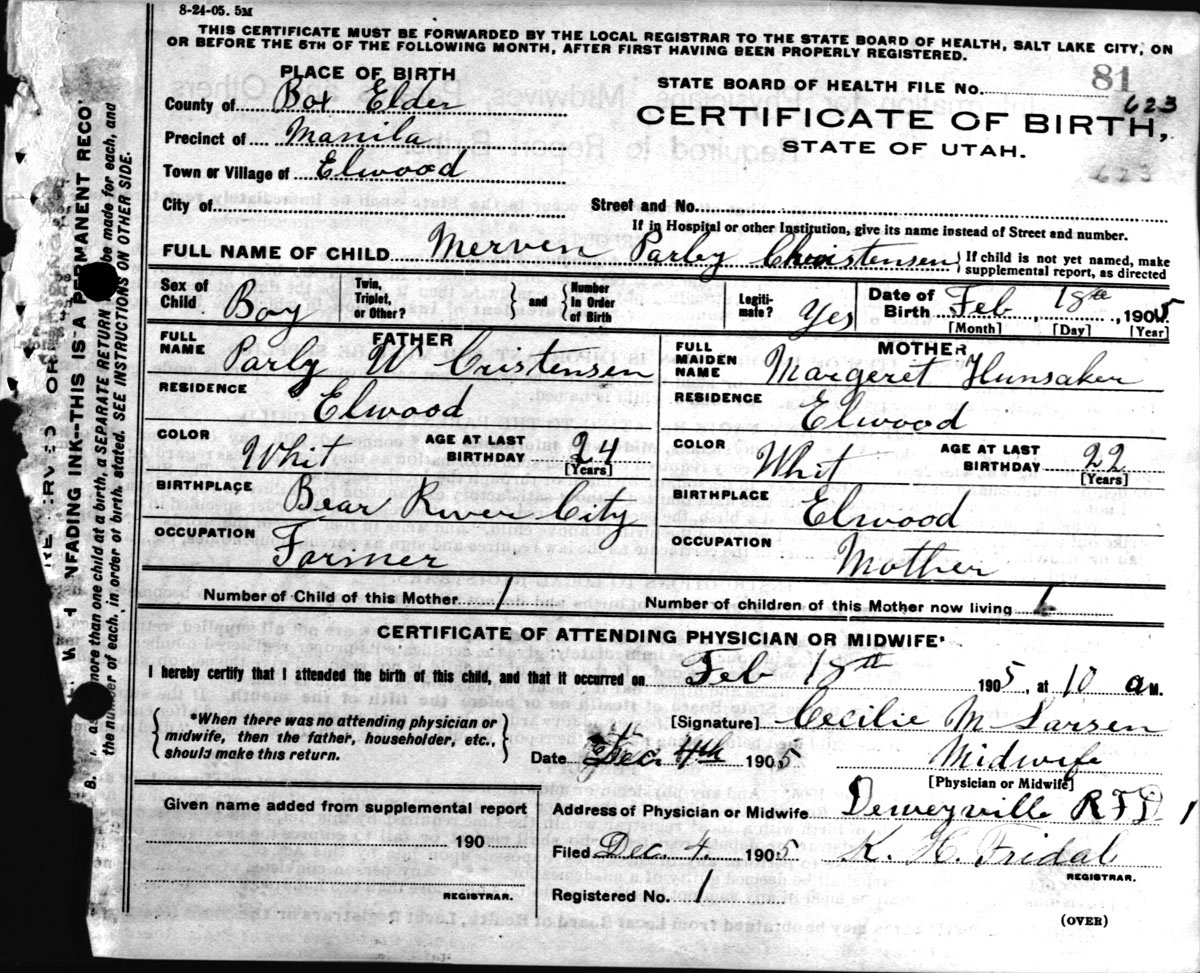 8-24-05. 5M
THIS CERTIFICATE MUST BE FORWARDED BY THE LOCAL REGISTRAR TO THE STATE BOARD OF HEALTH, SALT LAKE CITY, ON
OR BEFORE THE 5TH OF THE FOLLOWING MONTH, AFTER FIRST HAVING BEEN PROPERLY REGISTERED.
PLACE OF BIRTH
STATE BOARD OF HEALTH FILE No. 81
623
County of Box Elder
CERTIFICATE OF BIRTH,
Precinct of Manila
STATE OF UTAH.
Town or Village of Elwood
623
City of
Street and No.
If in Hospital or other Institution, give its name instead of Street and number.
FULL NAME OF CHILD Merven Parby Christensen } If child is not yet named, make supplemental report, as directed
Sex of Child Boy Twin, Triplet, or Other? } and { Number In Order of Birth Legiti-mate? Yes Date of Birth Feb 18th, 1905
[Month] [Day] [Year]
FATHER
FULL NAME Parly W Cristensen
RESIDENCE Elwood
COLOR Whit AGE AT LAST BIRTHDAY 24
[Years]
BIRTHPLACE Bear River City
OCCUPATION Farmer
MOTHER
FULL MAIDEN NAME Margeret Hunsaker
RESIDENCE Elwood
COLOR Whit AGE AT LAST BIRTHDAY 22
[Years]
BIRTHPLACE Elwood
OCCUPATION Mother
Number of Child of this Mother 1 Number of children of this Mother now living 1
CERTIFICATE OF ATTENDING PHYSICIAN OR MIDWIFE*
I hereby certify that I attended the birth of this child, and that it occurred on Feb 18th 1905, at 10 a M.
{ *When there was no attending physician or
midwife, then the father, householder, etc.,
should make this return. }
[Signature] Cecilie M Larsen
Date Dec. 4th 1905 Midwife
[Physician or Midwife]
Given name added from supplemental report
190
REGISTRAR.
Address of Physician or Midwife Deweyville RFD 1
Filed Dec. 4. 1905 K. H. Fridal
REGISTRAR.
Registered No. 1
(OVER)
NFADING INK--THIS IS A PERMANENT RECO
more than one child at a birth, a SEPARATE RETURN be made for each, and
the number of each, in order of birth, stated. SEE INSTRUCTIONS ON OTHER SIDE.